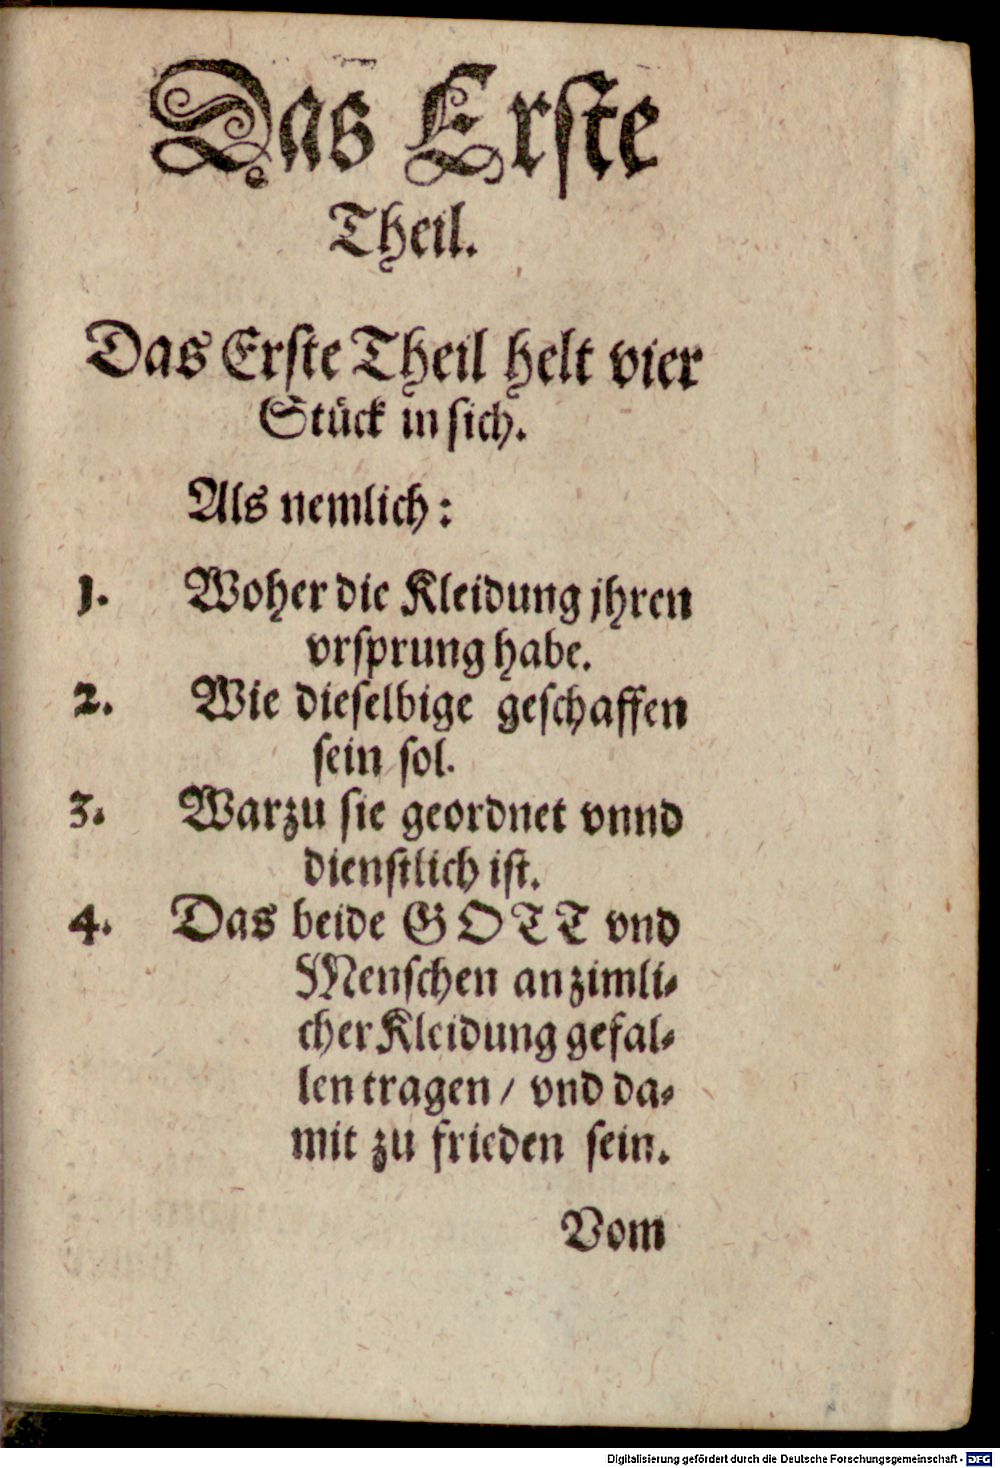 Das Erste
Theil.
Das Erste Theil helt vier
Stück in sich.
Als nemlich:
1. Woher die Kleidung jhren
vrsprung habe.
2. Wie dieselbige geschaffen
sein sol.
3. Warzu sie geordnet vnnd
dienstlich ist.
4. Das beide GOTT vnd
Menschen an zimli-
cher Kleidung gefal-
len tragen / vnd da-
mit zu frieden sein.
Vom
Digitalisierung gefördert durch die Deutsche Forschungsgemeinschaft - DFG